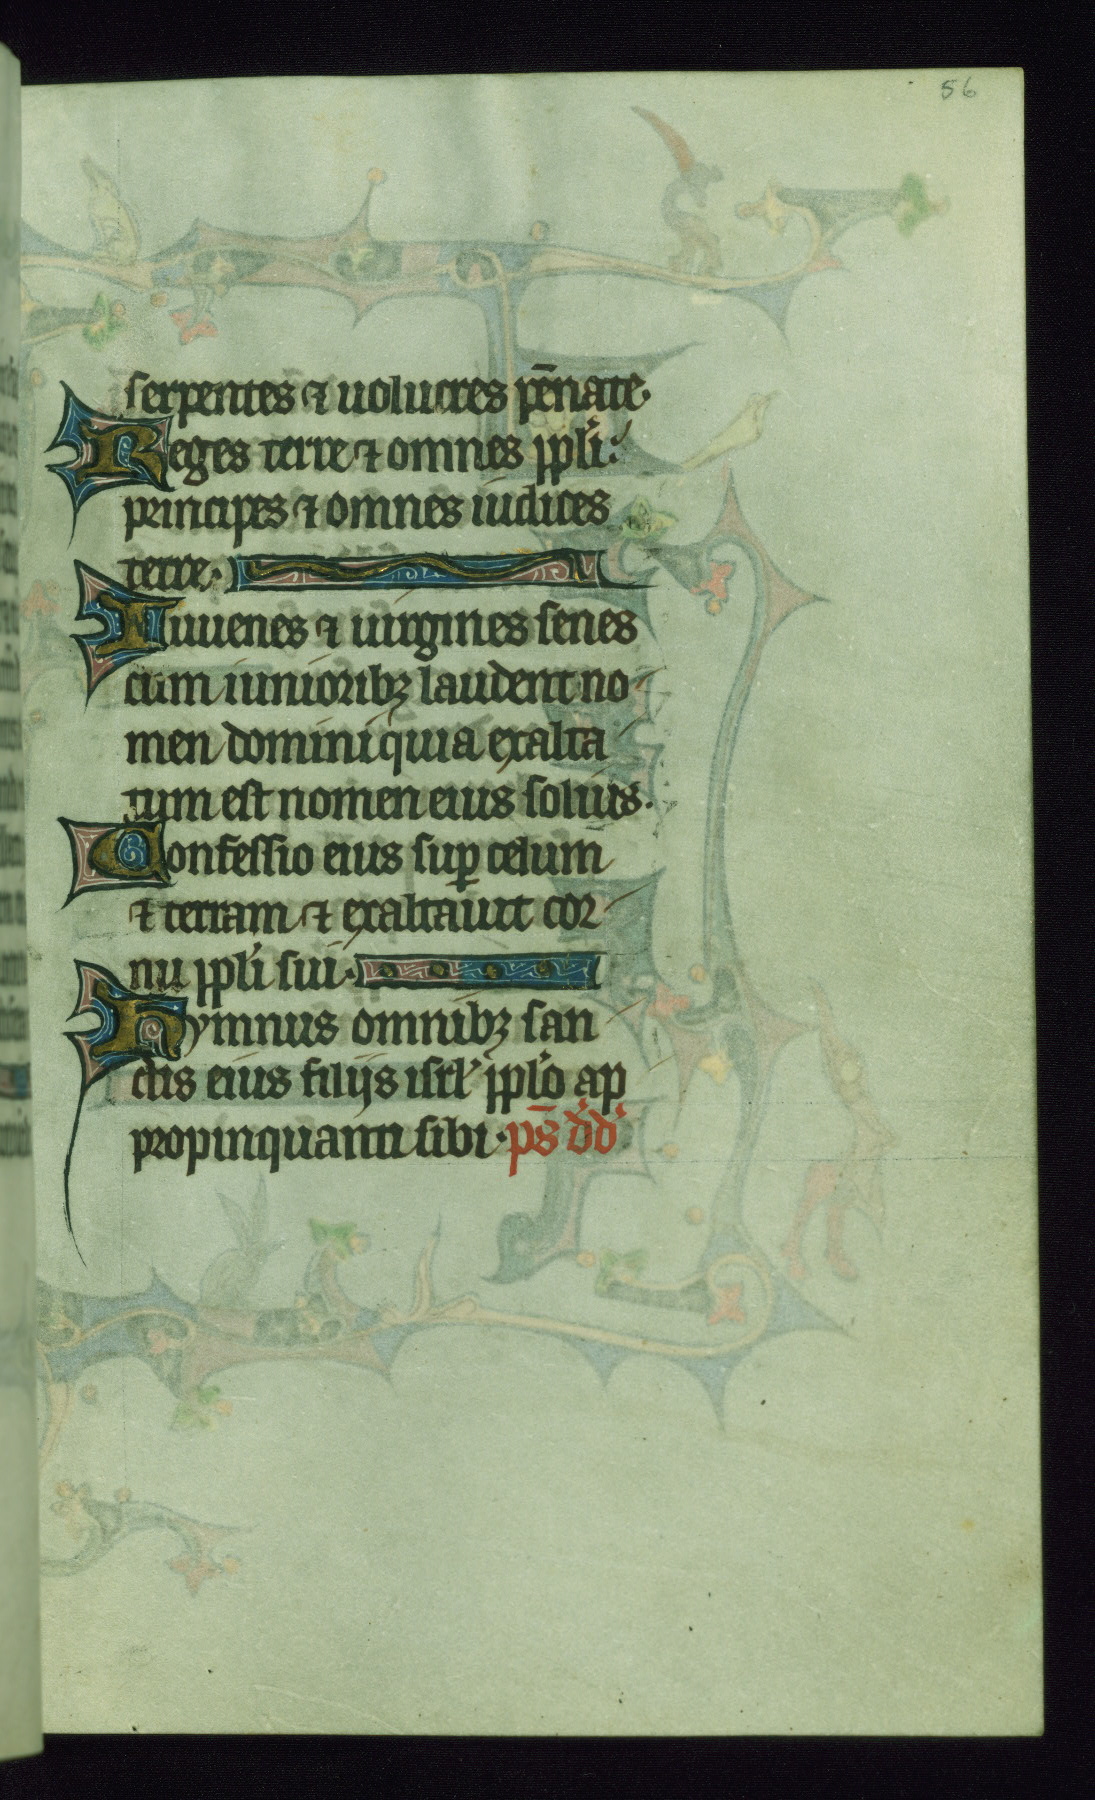 56
serpentes ⁊ uolucres pēnate.
Reges terre ⁊ omnes ppl'i:
principes ⁊ omnes iudices
terre.
Iuuenes ⁊ uirgines senes
cum iunioribꝫ laudent no
men domini quia exalta
tum est nomen eius solius.
Confessio eius suꝑ celum
⁊ terram ⁊ exaltauit cor
nu ppl'i sui.
Hymnus omnibꝫ san
ctis eius filijs isrl' ppl'o ap
propinquanti sibi. ps̄ d'd'